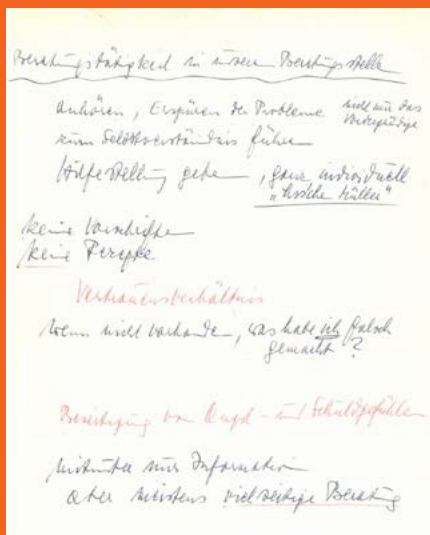 Beratungstätigkeit in unserer Beratungsstelle
anhören, Erspüren der Probleme nicht nur das
Vordergründige
zum Selbstverständnis führen
Hilfestellung geben, ganz individuell
"Lieschen Müller"
keine Vorschriften
keine Rezepte
Vertrauensverhältnis
wenn nicht vorhanden, was habe ich falsch
gemacht?
Beseitigung von Angst- und Schuldgefühlen
mitunter nur Information
aber meistens vielseitige Beratung